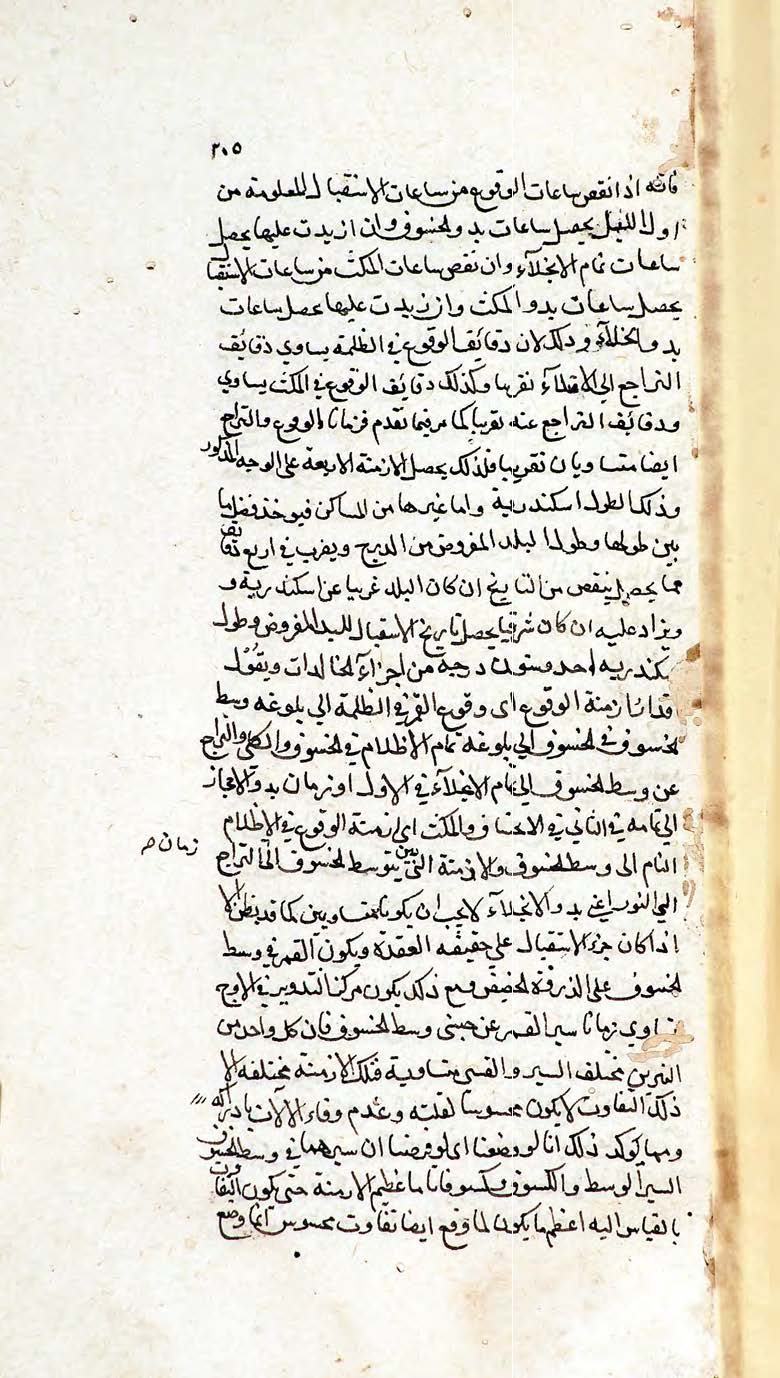 ٢٠٥
فانه اذا نقص ساعات الوقوع من ساعات الاستقبال المعلومة من
اول الليل يحصل ساعات بدو الخسوف وان ازيدت عليها يحصل
ساعات تمام الانجلآء وان نقص ساعات المكث من ساعات الاستقبال
يحصل ساعات بدو المكث وان زيدت عليها يحصل ساعات
بدو الانجلآء وذلك لان دقائق الوقوع في الظلمة يساوي دقائق
التراجع الي الامتلآء تقريبا وكذلك دقائق الوقوع في المكث يساوي
ودقائق التراجع عنه تقريبا كما مر فيما تقدم فزمانا الوقوع والتراجع
ايضا متساويان تقريبا فلذلك يحصل الازمنة الاربعة علي الوجه المذكور
وذلك لطول اسكندرية واما غيرها من المساكن فيوخذ فضل ما
بين طولها وطول البلد المفروض من الدرج ويضرب في اربع دقايق
مما يحصل ينقص من التاريخ ان كان البلد غربيا عن اسكندرية و
ويزاد عليه ان كان شرقيا يحصل تاريخ الاستقبال للبلد المفروض وطول
سكندريه احد وستون درجة من اجزآء الخالدات ويقول
ازمنة الوقوع اى وقوع القمر في الظلمة الي بلوغه وسط
الخسوف في الخسوف الي بلوغه تمام الاظلام في الخسوف والكلي والتراجع
عن وسط الخسوف الي تمام الانجلآء في الاول او زمان بدو الانجلاز
الي تمامه في الثاني في الانخساف والمكث اى ازمنة الوقوع في الاظلام
التام الى وسط الخسوف والازمنة التي بين يتوسط الخسوف الي التراجع
زمان صح
الي النور اعني بدو الانجلآء لايجب ان يكونا متساويين كما قد يظن الا
اذا كان جزء الاستقبال علي حقيقه العقدة ويكون القمر في وسط
الخسوف علي الذروة الحضيض ومع ذلك يكون مركز التدوير في الاوج
تساوي زمانا سير القمر عن جنبى وسط الخسوف فان كل واحد من
النيرين مختلف السير والقسي متساوية فتلك الازمنة مختلفه الا
ذلك التفاوت لا يكون محسوسا لقلته وعدم وفاء الالات بادراكه
ومما يوكد ذلك انا لو وضعنا اى لو فرضنا ان سيرهما في وسط الخسوف
السير الوسط والكسوف وكسوفاتا ما عظيم الازمنة حتى يكون التفاوت
بالقياس اليه اعظم ما يكون لما وقع ايضا تفاوت محسوس انما وضع